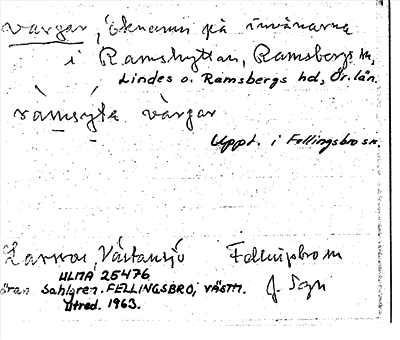 vargar, öknamn på invånarna
i Ramshyttan, Ramsbergs sn,
Lindes o. Ramsbergs hd, Ör. län.
ràmsỳta vàrgar
Uppt. i Fellingsbro sn.
Västansjö Fellingsbro sn
ULMA 25476 J. Sgn
öran Sahlgren. FELLINGSBRO, VÄSTM.
Utred. 1963.